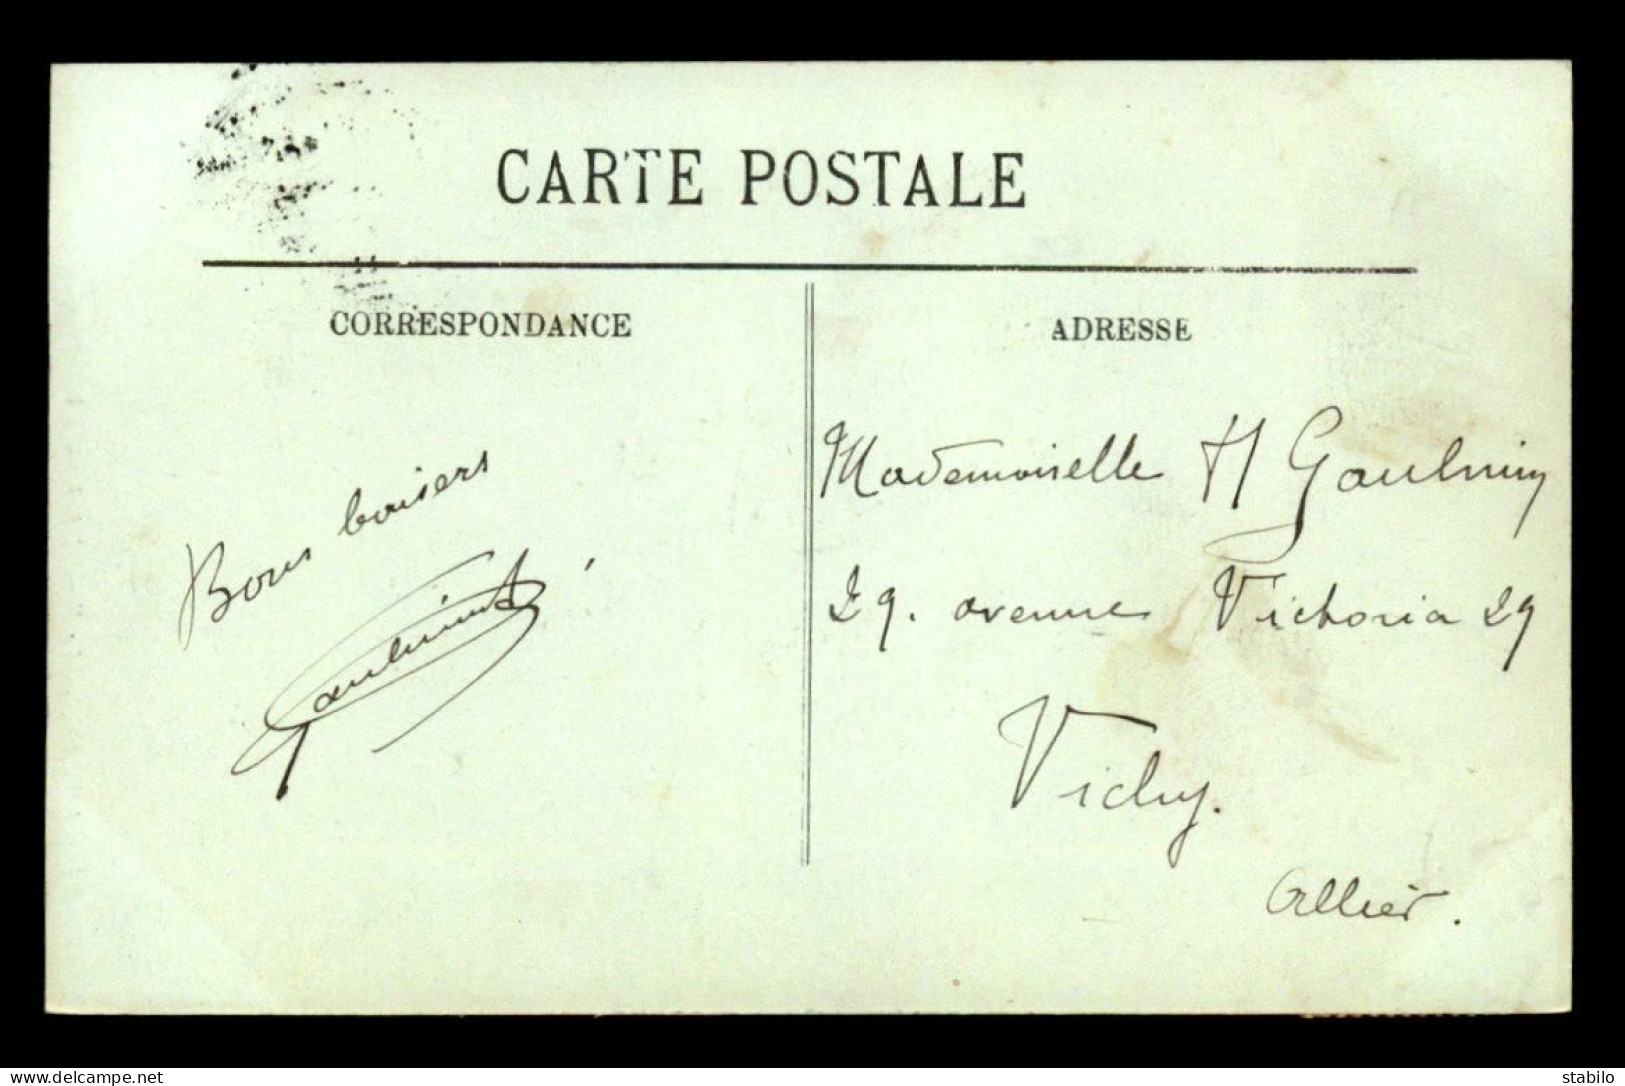 CARTE POSTALE
CORRESPONDANCE
ADRESSE
Bons baisers
Mademoiselle H Gaulmin
29. avenue Victoria 29
Vichy.
Allier.
delcampe.net
stabilo